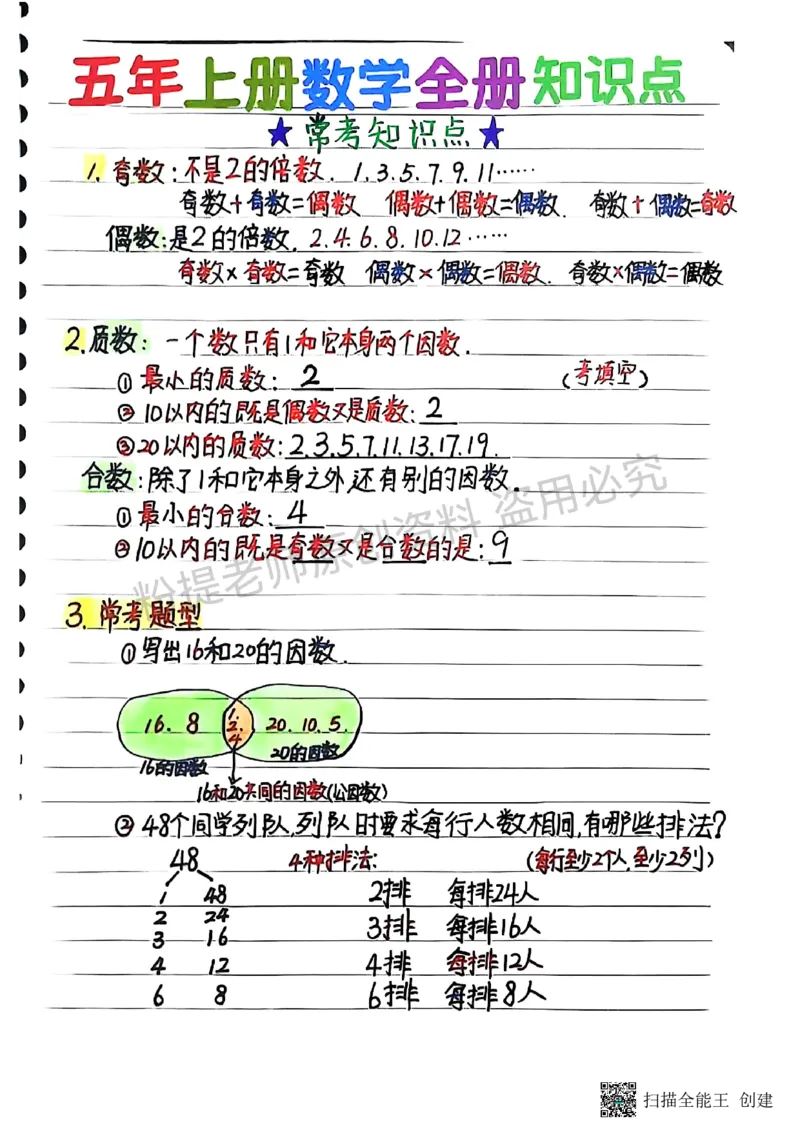 五年上册数学全册知识点
★常考知识点★
1. 奇数:不是2的倍数. 1.3.5.7.9.11……
奇数+奇数=偶数 偶数+偶数=偶数. 奇数+偶数=奇数
偶数:是2的倍数. 2.4.6.8.10.12……
奇数×奇数=奇数 偶数×偶数=偶数. 奇数×偶数=偶数
2.质数:一个数只有1和它本身两个因数.
①最小的质数: 2 (考填空)
②10以内的既是偶数又是质数: 2
③20以内的质数:2.3.5.7.11.13.17.19.
合数:除了1和它本身之外,还有别的因数.
①最小的合数: 4
②10以内的既是奇数又是合数的是: 9
粉提老师原创资料 盗用必究
3. 常考题型
①写出16和20的因数.
16. 8 1. 2. 4 20. 10. 5.
20的因数
16的因数
16和20共同的因数(公因数)
②48个同学列队,列队时要求每行人数相同,有哪些排法?
48 4种排法: (每行至少2个人,至少2列)
1 48 2排 每排24人
2 24
3 16 3排 每排16人
4 12 4排 每排12人
6 8 6排 每排8人
扫描全能王 创建